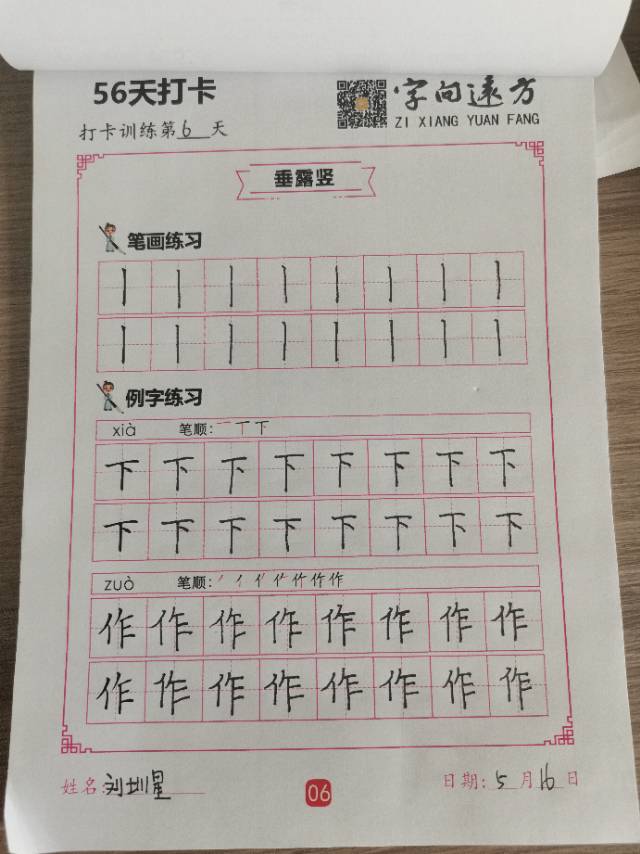 56天打卡
字向远方
ZI XIANG YUAN FANG
打卡训练第6天
垂露竖
笔画练习
丨丨丨丨丨丨丨丨
丨丨丨丨丨丨丨丨
例字练习
xià 笔顺:一丅下
下下下下下下下下
下下下下下下下下
zuò 笔顺:
作作作作作作作作
作作作作作作作作
姓名:刘圳星
06
日期:5月16日